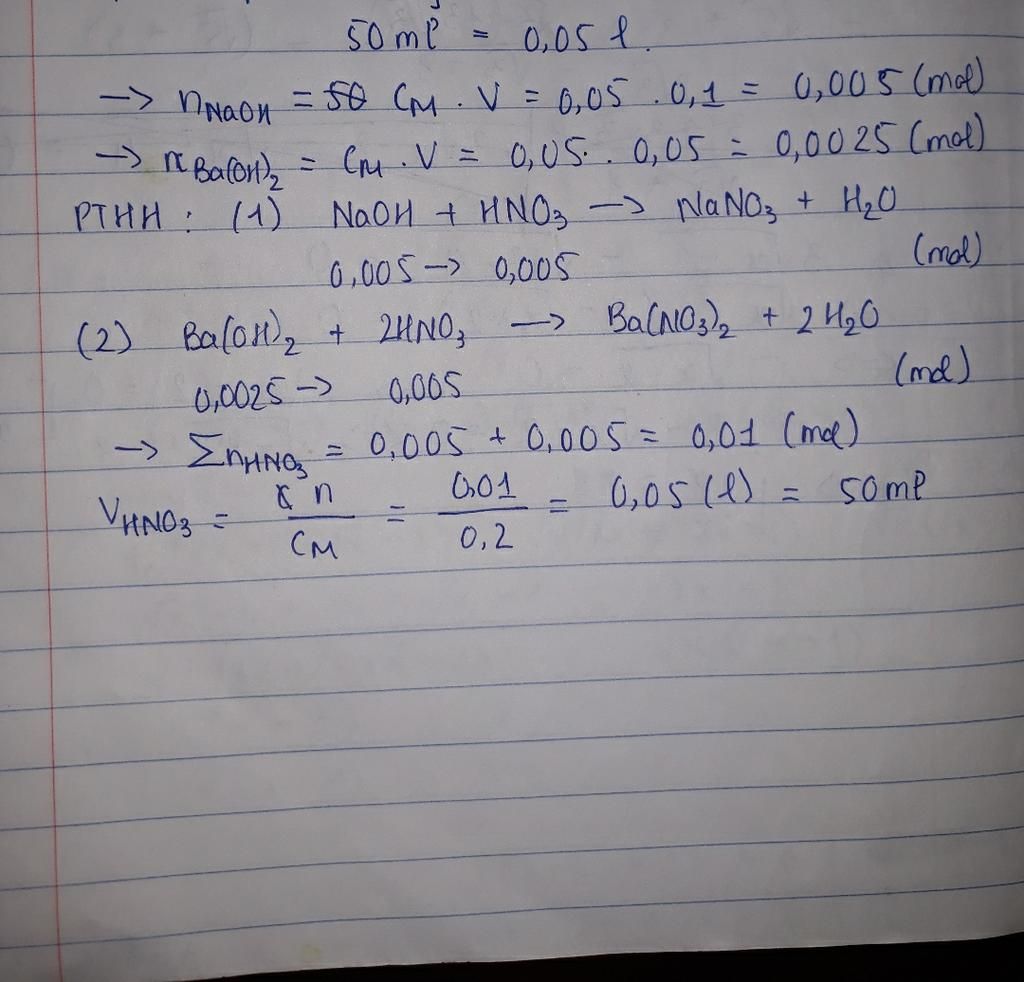 50ml = 0,05 l.
→ nNaOH = CM . V = 0,05 . 0,1 = 0,005 (mol)
→ nBa(OH)2 = CM . V = 0,05 . 0,05 = 0,0025 (mol)
PTHH : (1) NaOH + HNO3 → NaNO3 + H2O
0,005 → 0,005 (mol)
(2) Ba(OH)2 + 2HNO3 → Ba(NO3)2 + 2H2O
0,0025 → 0,005 (mol)
→ ΣnHNO3 = 0,005 + 0,005 = 0,01 (mol)
VHNO3 = n / CM = 0,01 / 0,2 = 0,05 (l) = 50ml